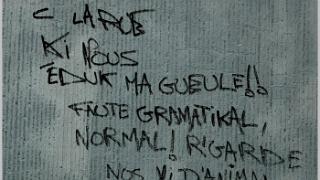 C LA RUE
KI NOUS
ÉDUK MA GUEULE!!
FAUTE GRAMATIKAL,
NORMAL! R'GARDE
NOS VI D'ANIMAL